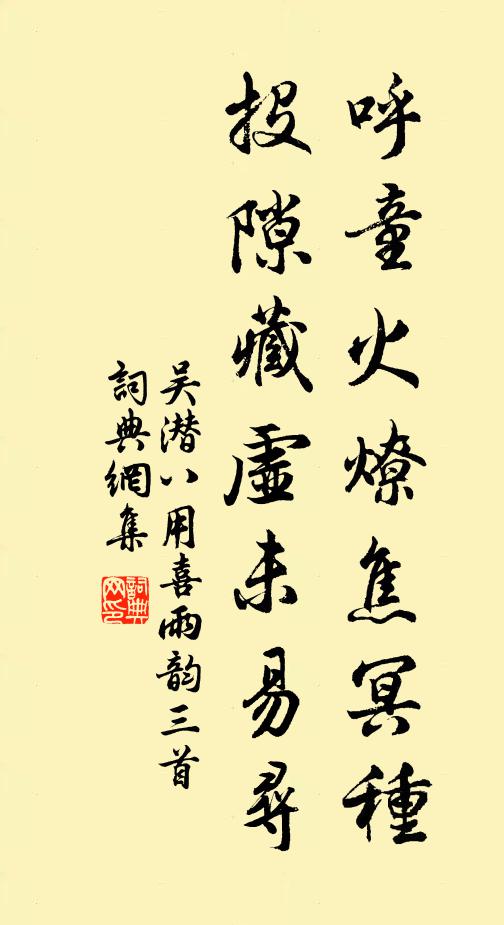 呼童火燎焦冥種
投隙藏虛未易尋
吴潜八用喜雨韵三首
詞典網集
詞典
网印